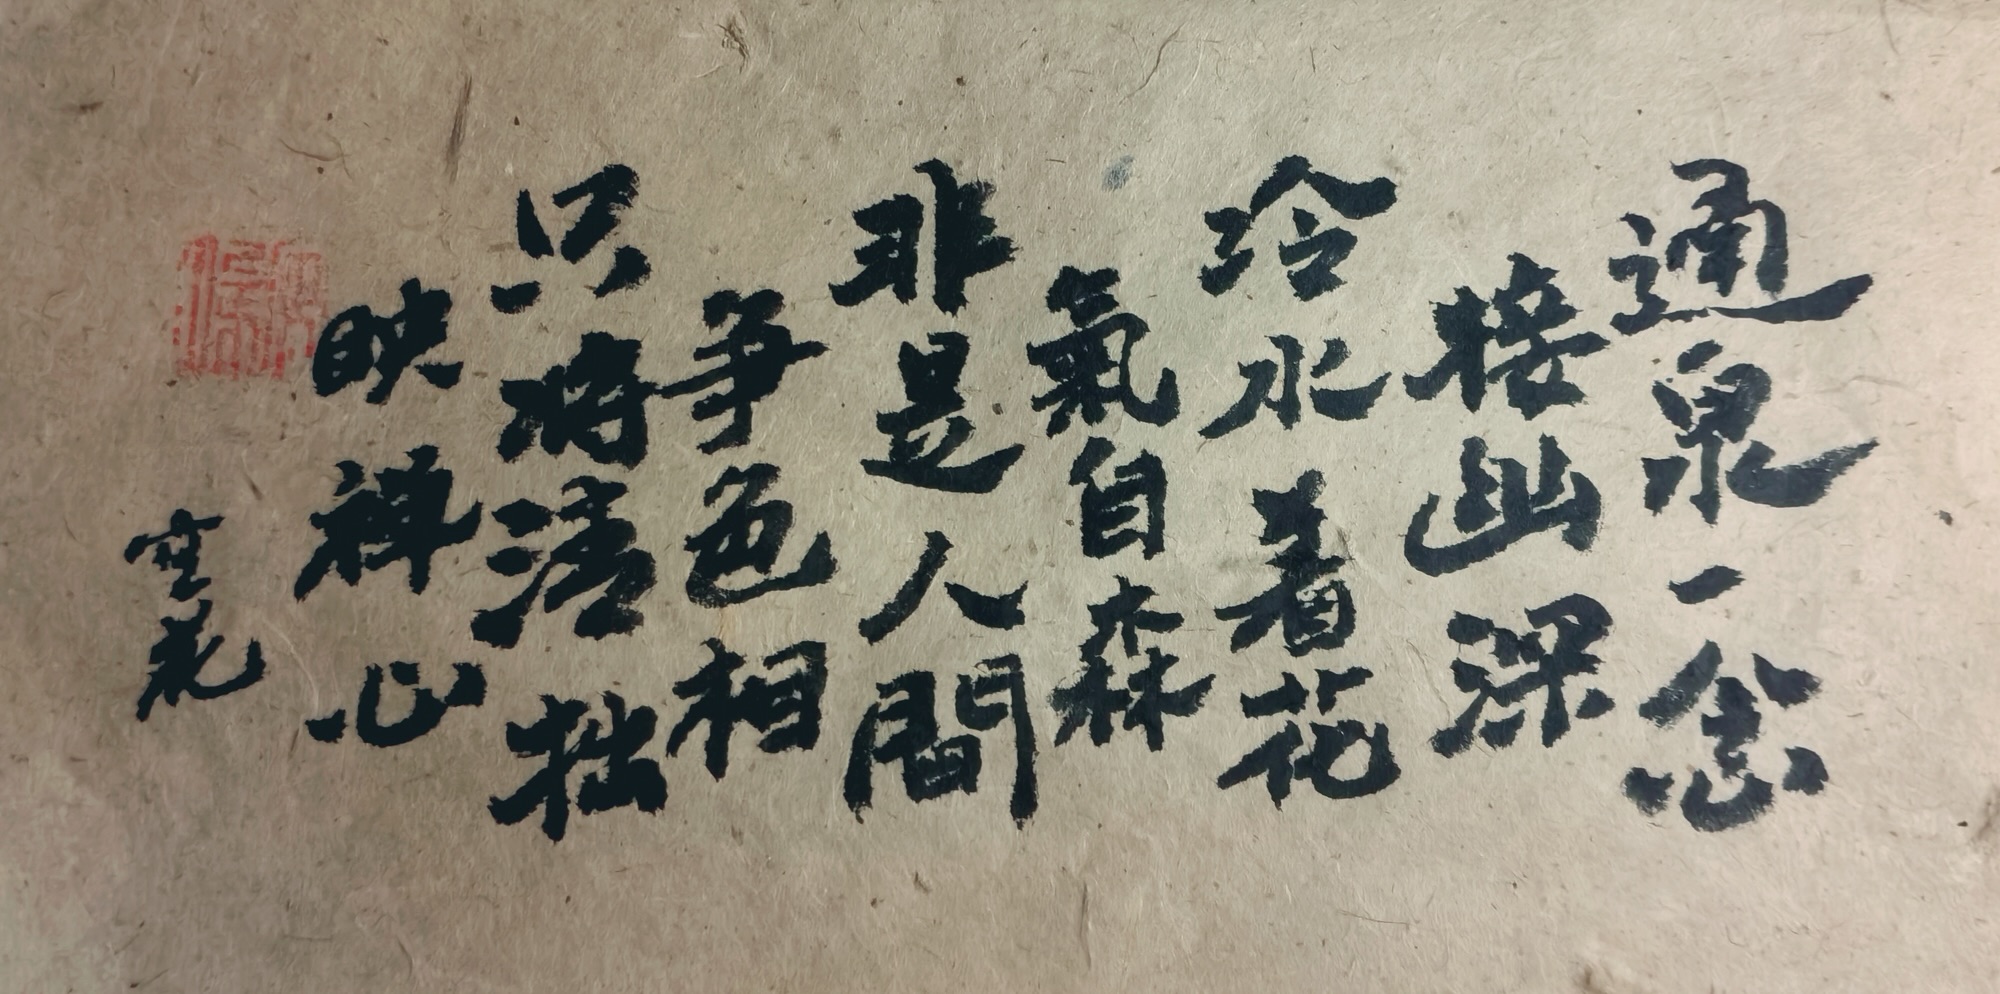 通泉一念
接幽深
冷水着花
氣自森
非是人間
爭色相
只將清拙
映禪心
空花